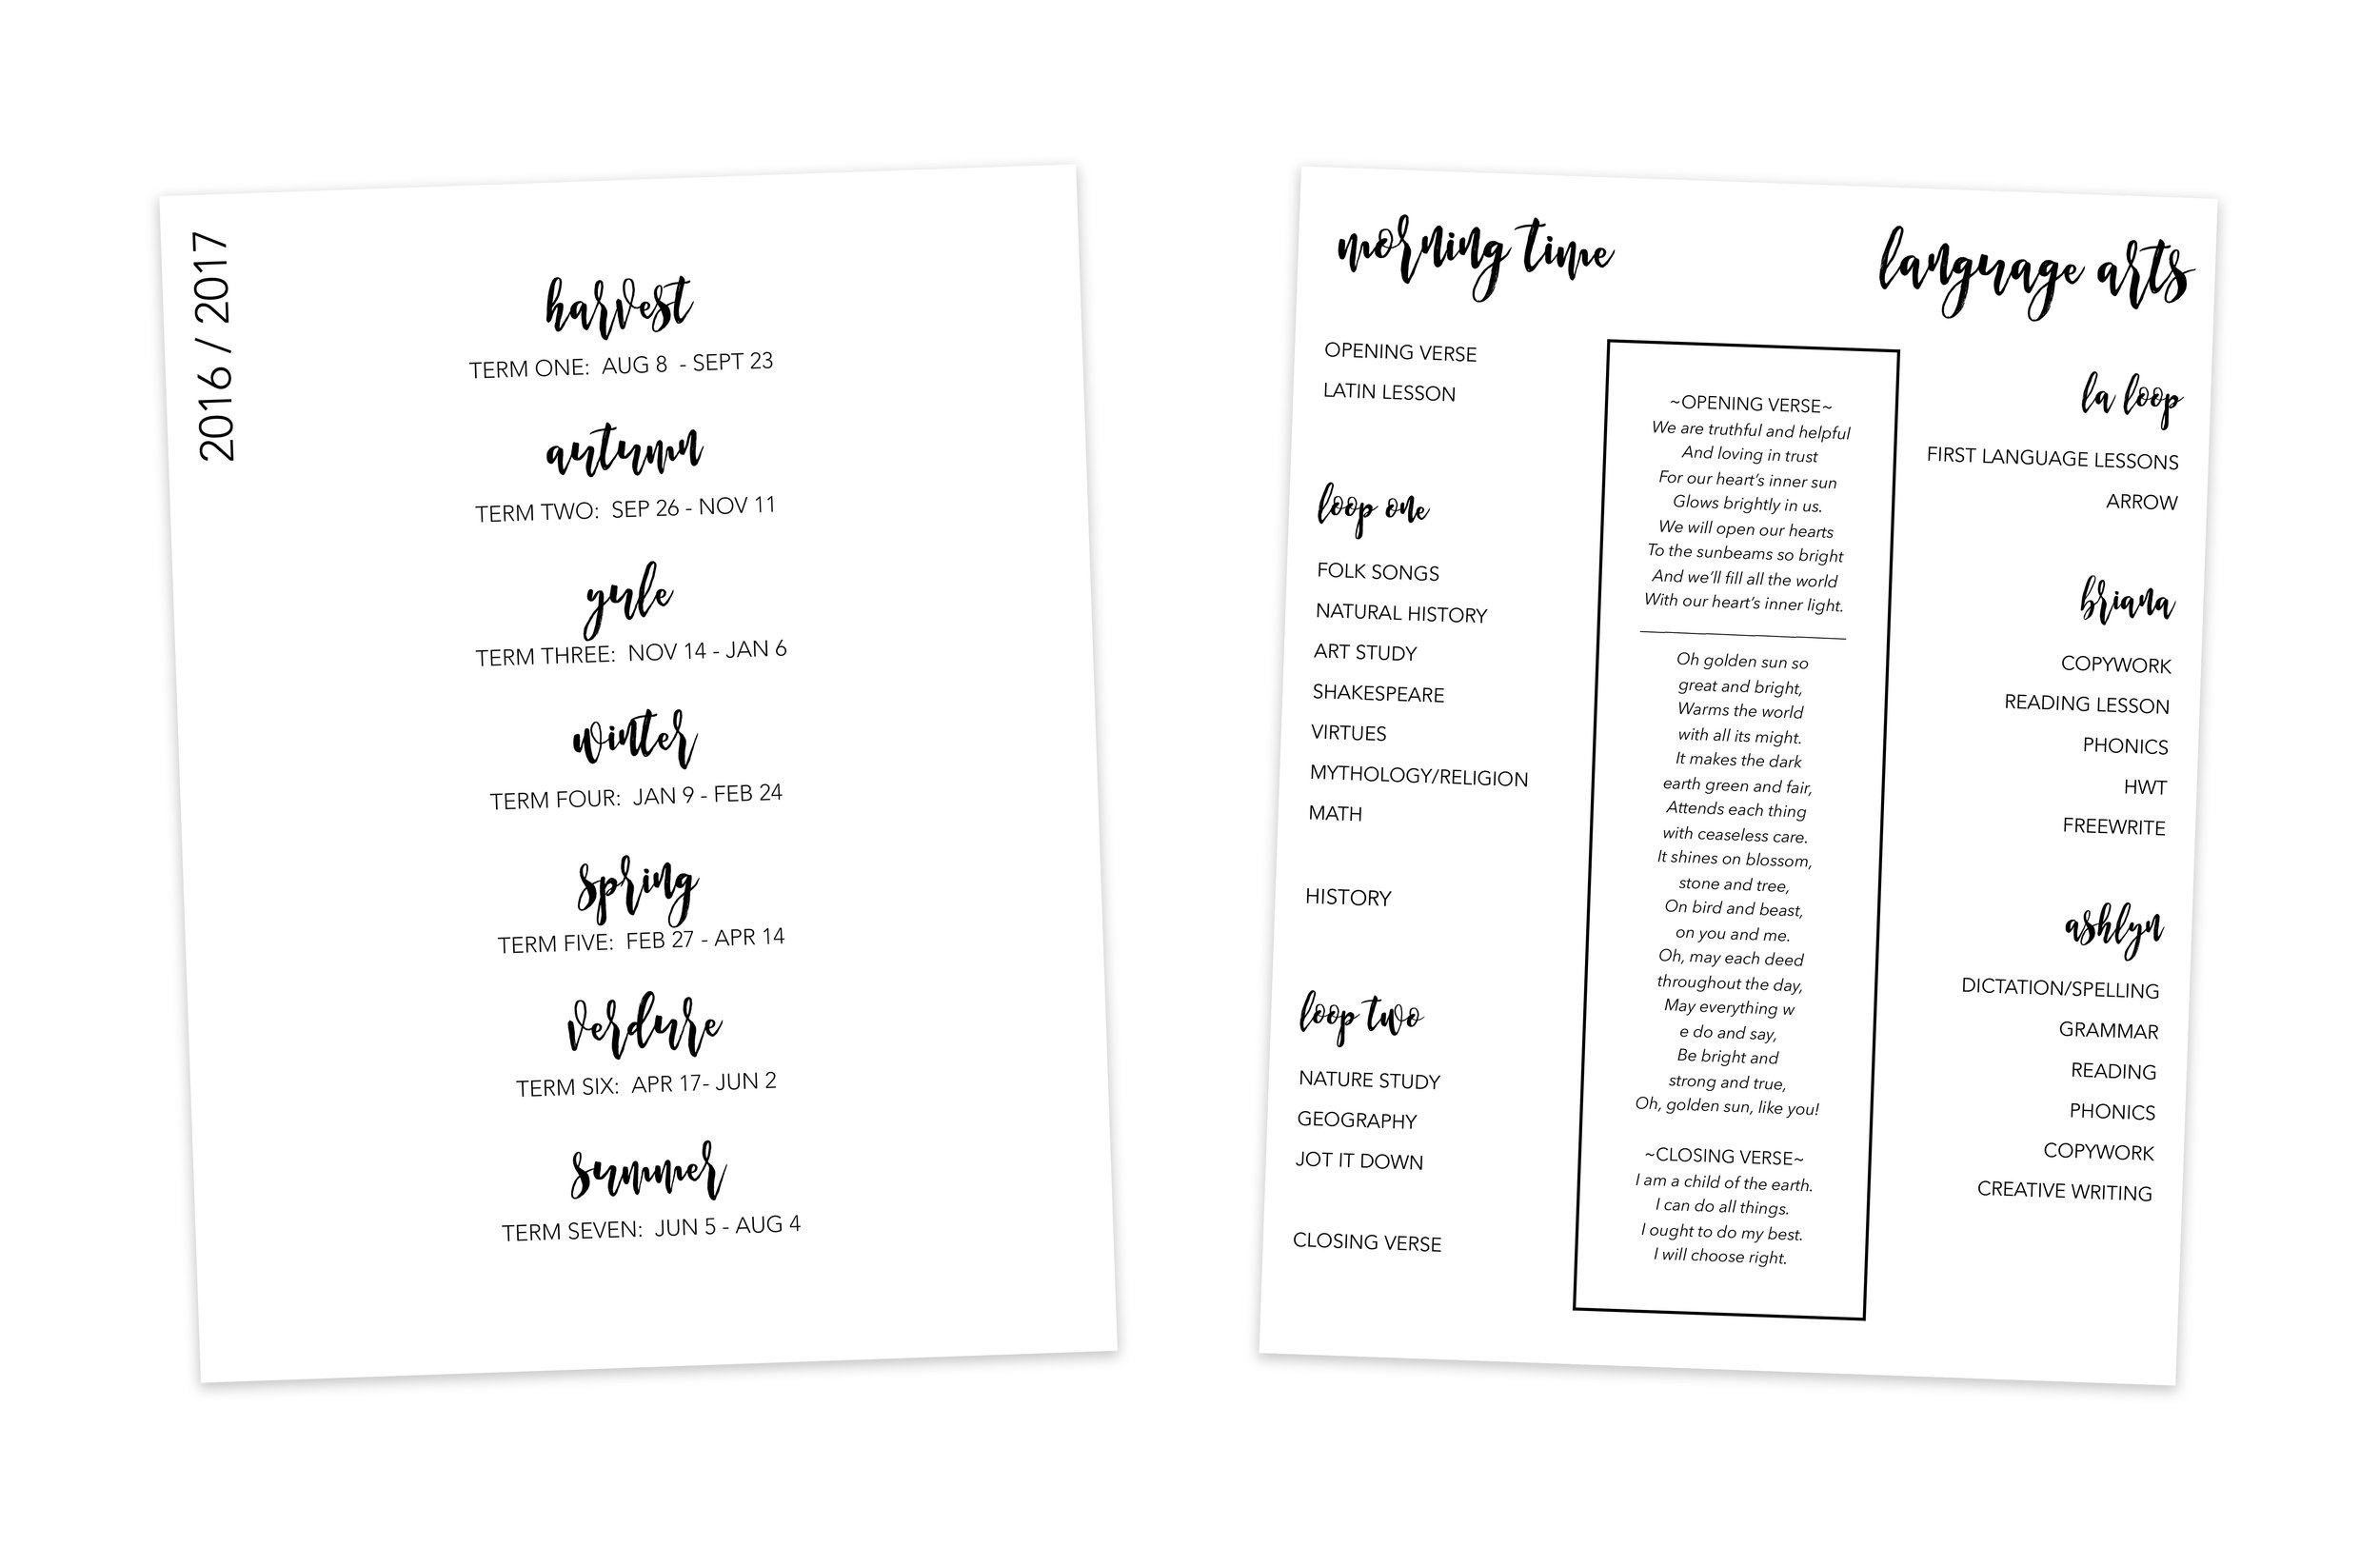 2016 / 2017
harvest
TERM ONE: AUG 8 - SEPT 23
autumn
TERM TWO: SEP 26 - NOV 11
yule
TERM THREE: NOV 14 - JAN 6
winter
TERM FOUR: JAN 9 - FEB 24
spring
TERM FIVE: FEB 27 - APR 14
verdure
TERM SIX: APR 17- JUN 2
summer
TERM SEVEN: JUN 5 - AUG 4
morning time
OPENING VERSE
LATIN LESSON
loop one
FOLK SONGS
NATURAL HISTORY
ART STUDY
SHAKESPEARE
VIRTUES
MYTHOLOGY/RELIGION
MATH
HISTORY
loop two
NATURE STUDY
GEOGRAPHY
JOT IT DOWN
CLOSING VERSE
~OPENING VERSE~
We are truthful and helpful
And loving in trust
For our heart's inner sun
Glows brightly in us.
We will open our hearts
To the sunbeams so bright
And we'll fill all the world
With our heart's inner light.
Oh golden sun so
great and bright,
Warms the world
with all its might.
It makes the dark
earth green and fair,
Attends each thing
with ceaseless care.
It shines on blossom,
stone and tree,
On bird and beast,
on you and me.
Oh, may each deed
throughout the day,
May everything w
e do and say,
Be bright and
strong and true,
Oh, golden sun, like you!
~CLOSING VERSE~
I am a child of the earth.
I can do all things.
I ought to do my best.
I will choose right.
language arts
la loop
FIRST LANGUAGE LESSONS
ARROW
briana
COPYWORK
READING LESSON
PHONICS
HWT
FREEWRITE
ashlyn
DICTATION/SPELLING
GRAMMAR
READING
PHONICS
COPYWORK
CREATIVE WRITING